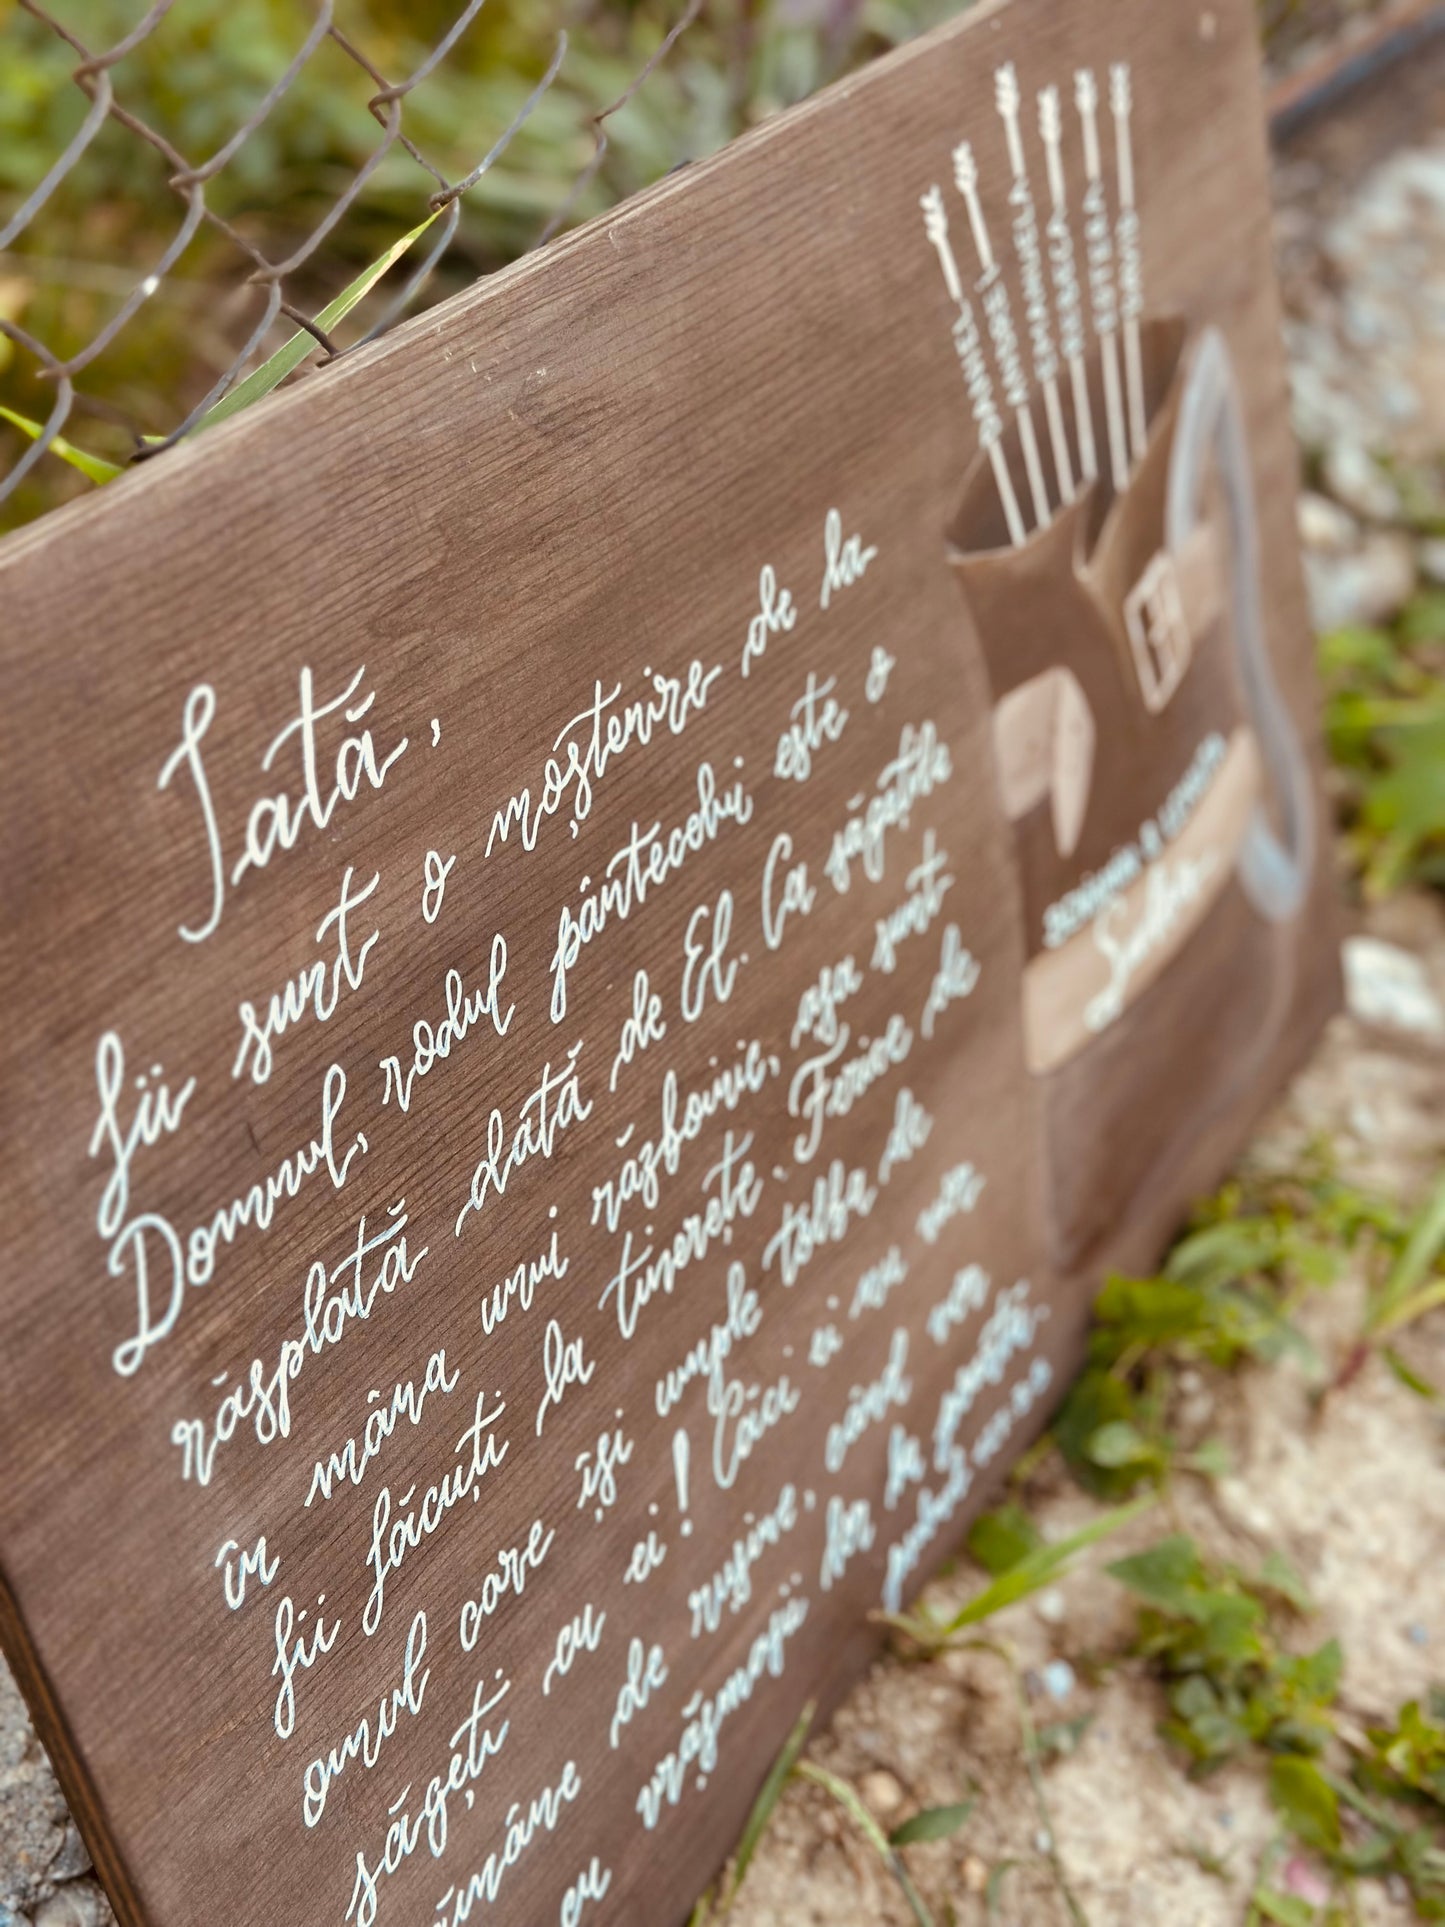 DANIEL
EMANUELA
REBECA
ESTERA
DAVID
Iată,
fii sunt o moștenire de la
Domnul, rodul pântecelui este o
răsplată dată de El. Ca săgețile
în mâna unui războinic, așa sunt
fii făcuți la tinerețe. Ferice de
omul care își umple tolba de
săgeți cu ei! Căci ei nu vor
rămâne de rușine, când vor
cu vrăjmașii lor la poartă.